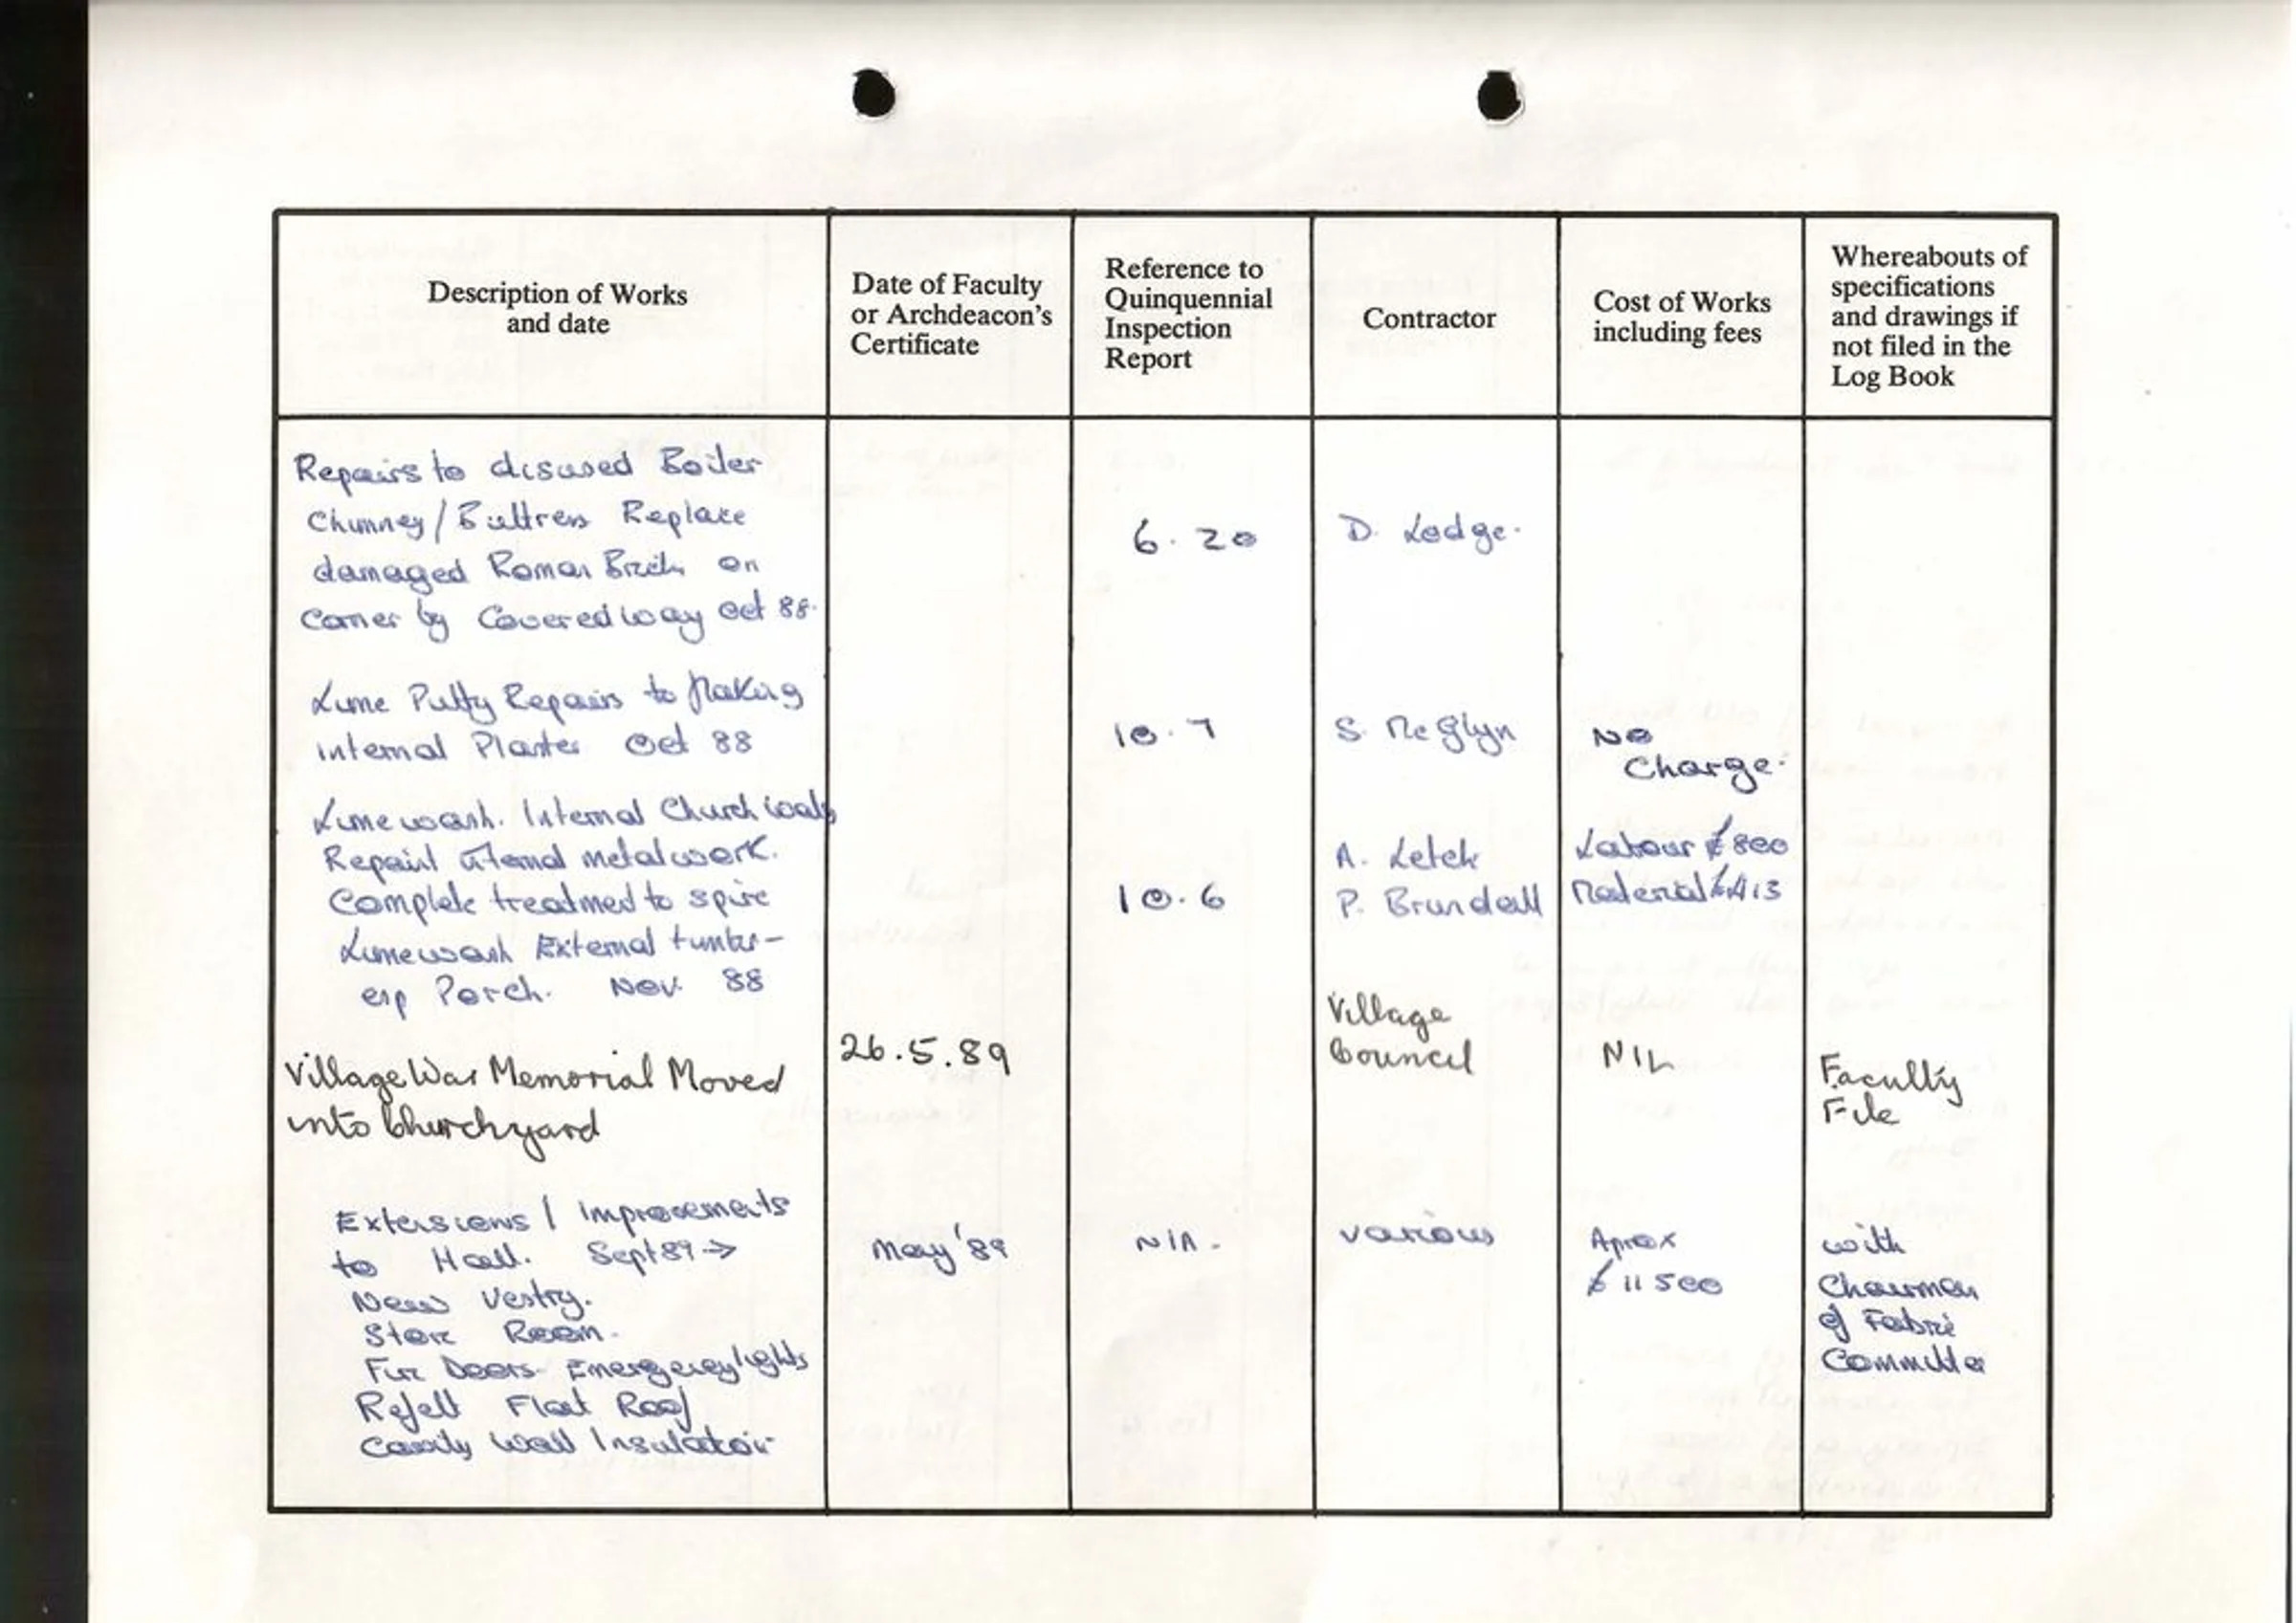 Description of Works
and date
Date of Faculty
or Archdeacon's
Certificate
Reference to
Quinquennial
Inspection
Report
Contractor
Cost of Works
including fees
Whereabouts of
specifications
and drawings if
not filed in the
Log Book
Repairs to disused Boiler
Chimney / Buttress Replace
damaged Roman Brick on
corner by Covered way Oct 88.
6.20
D. Lodge.
Lime Putty Repairs to flaking
internal Plaster Oct 88
10.7
S. McGlyn
No
Charge.
Limewash. Internal Church walls
Repaint internal metalwork.
Complete treatment to spire
Limewash External timber-
Porch. Nov. 88
10.6
A. Letch
P. Brundall
Labour £800
Material £413
Village War Memorial Moved
into Churchyard
26.5.89
Village
Council
NIL
Faculty
File
Extensions / improvements
to Hall. Sept 89 →
New Vestry.
Store Room.
Fire Doors - Emergency lights
Refelt Flat Roof
Cavity Wall Insulation
May '89
N/A.
various
Aprox
£11500
with
Chairman
of Fabric
Committee